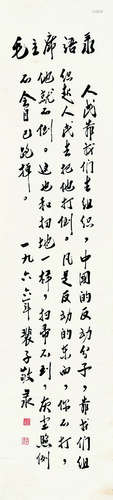 毛主席语录
人民靠我们去组织，中国的反动分子，靠我们组
织起人民去把他打倒。凡是反动的东西，你不打，
他就不倒。这也和扫地一样，扫帚不到，灰尘照例
不会自己跑掉。
一九六六年 裴子敬录